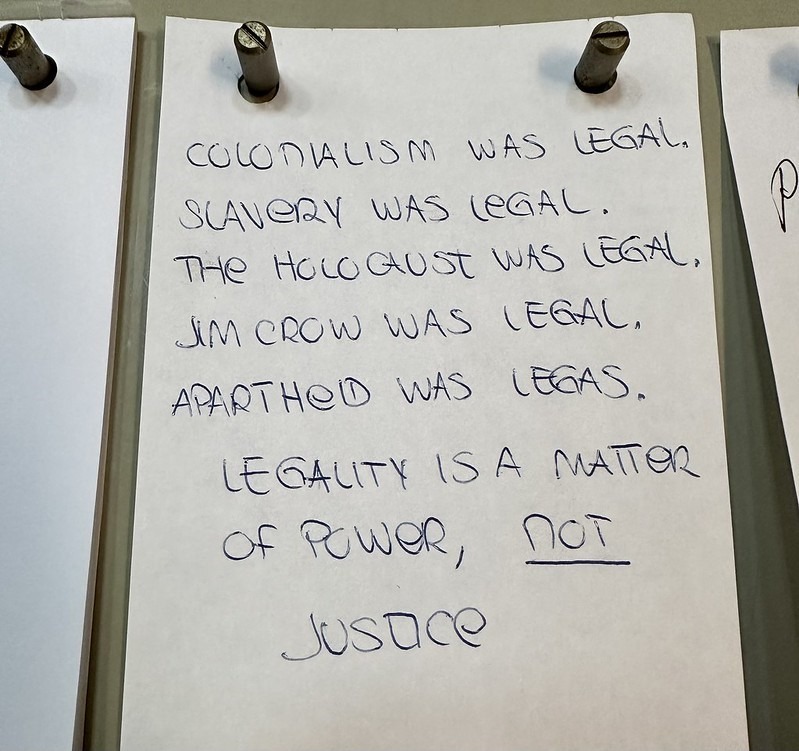 COLONIALISM WAS LEGAL.
SLAVERY WAS LEGAL.
THE HOLOCAUST WAS LEGAL.
JIM CROW WAS LEGAL.
APARTHEID WAS LEGAS.
LEGALITY IS A MATTER
OF POWER, NOT
JUSTICE
P